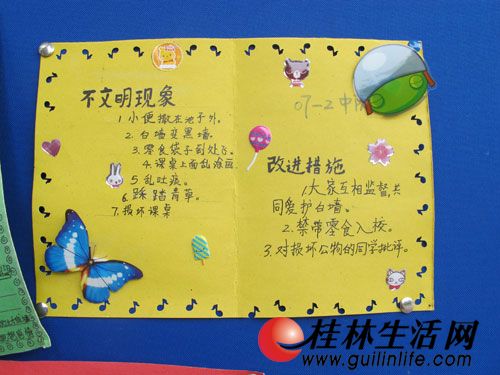 不文明现象
1.小便撒在池子外。
2.白墙变黑墙。
3.零食袋子到处丢。
4.课桌上面乱涂画
5.乱吐痰。
6.踩踏青草。
7.损坏课桌
07-2中
改进措施
1.大家互相监督,共
同爱护白墙。
2.禁带零食入校。
3.对损坏公物的同学批评。
桂林生活网
www.guilinlife.com